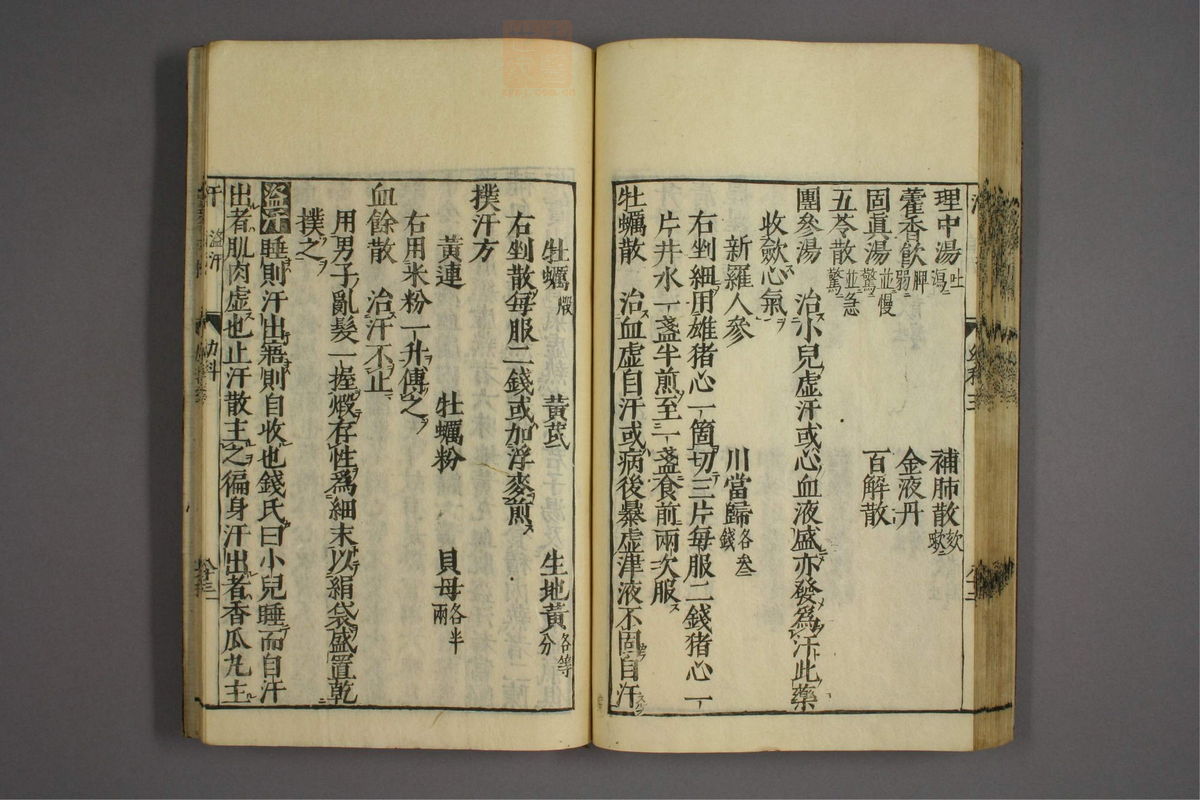 理中湯 吐瀉 補肺散 欬嗽
藿香飲 脾弱 金液丹
固眞湯 並慢驚 百解散
五苓散 並急驚
團參湯 治小兒虛汗或心血液盛亦發爲汗此藥
收歛心氣
新羅人參 川當歸 各叁錢
右剉細用雄猪心一箇切三片每服二錢猪心一
片井水一盞半煎至一盞食前兩次服
牡蠣散 治血虛自汗或病後暴虛津液不固自汗
牡蠣 煅 黃芪 生地黃 各等分
右剉散每服二錢或加浮麥煎
撲汗方
黃連 牡蠣粉 貝母 各半兩
右用米粉一升傅之
血餘散 治汗不止
用男子亂髮一握煅存性爲細末以絹袋盛置乾
撲之
盜汗 睡則汗出寤則自收也錢氏曰小兒睡而自汗
出者肌肉虛也止汗散主之徧身汗出者香瓜丸主
汗 盜汗 幼科 八十三